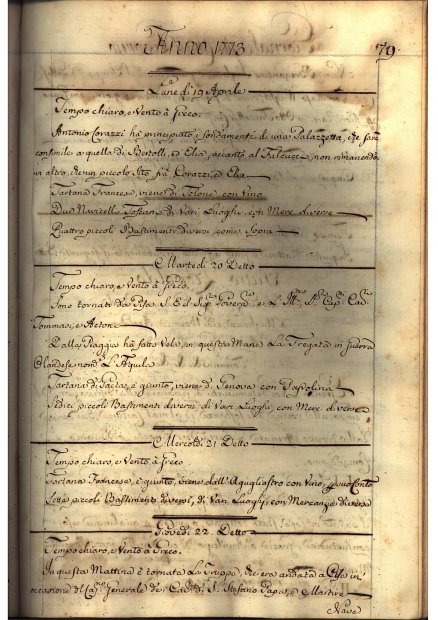 Anno 1773.
79
Lune di 19 Aprile
Tempo chiaro, e Vento à Greco.
Antonio Corazzi hà principiato i fondamenti di una Palazzetta, che farà
consimile a quella di Bertolli, ed Elia, accanto al non rimanendo
in altro, che un piccolo Sito frà Corazzi, ed Elia
Tartana Francese, viene di Tolone con Vino
Due Navicelli Toscani di Vari Luoghi, con Merc. diverse
Quattro piccoli Bastimenti diversi, come Sopra
Martedi 20 Detto
Tempo chiaro, e Vento à Greco.
Sono tornati da Pisa S. E. il Sig.re Govern.re, e
Tommasi, e Actone
Dalla Piaggia hà fatto Vela in questa Mane La Fregata in guerra
Olandese nom.ta L'Aquila
Tartana di è giunto, viene di Genova con
Sedici piccoli Bastimenti diversi, di Vari Luoghi, con Merc. diverse
Mercoldi 21 Detto
Tempo chiaro, e Vento à Greco
Tartana Francese, è giunto, viene dall'Agugliastro con Vino, p suo Conto
Sette piccoli Bastimenti diversi, di Vari Luoghi, con Mercanzie diverse
Giovedi 22. Detto
Tempo chiaro, e Vento à Greco.
In questa Mattina è tornata la Truppa, che era andata a Pisa in
occasione del Generale de Cav.ri di S. Stefano Papa, e Martire
Nave